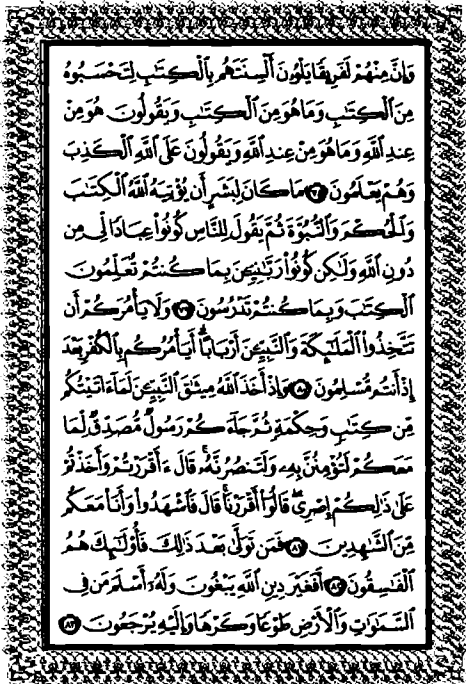 وَإِنَّ مِنْهُمْ لَفَرِيقًا يَلْوُۥنَ أَلْسِنَتَهُم بِٱلْكِتَٰبِ لِتَحْسَبُوهُ
مِنَ ٱلْكِتَٰبِ وَمَا هُوَ مِنَ ٱلْكِتَٰبِ وَيَقُولُونَ هُوَ مِنْ
عِندِ ٱللَّهِ وَمَا هُوَ مِنْ عِندِ ٱللَّهِ وَيَقُولُونَ عَلَى ٱللَّهِ ٱلْكَذِبَ
وَهُمْ يَعْلَمُونَ ٧٨ مَا كَانَ لِبَشَرٍ أَن يُؤْتِيَهُ ٱللَّهُ ٱلْكِتَٰبَ
وَٱلْحُكْمَ وَٱلنُّبُوَّةَ ثُمَّ يَقُولَ لِلنَّاسِ كُونُوا۟ عِبَادًا لِّى مِن
دُونِ ٱللَّهِ وَلَٰكِن كُونُوا۟ رَبَّٰنِيِّـۧنَ بِمَا كُنتُمْ تُعَلِّمُونَ
ٱلْكِتَٰبَ وَبِمَا كُنتُمْ تَدْرُسُونَ ٧٩ وَلَا يَأْمُرَكُمْ أَن
تَتَّخِذُوا۟ ٱلْمَلَٰٓئِكَةَ وَٱلنَّبِيِّـۧنَ أَرْبَابًا ۗ أَيَأْمُرُكُم بِٱلْكُفْرِ بَعْدَ
إِذْ أَنتُم مُّسْلِمُونَ ٨٠ وَإِذْ أَخَذَ ٱللَّهُ مِيثَٰقَ ٱلنَّبِيِّـۧنَ لَمَآ ءَاتَيْتُكُم
مِّن كِتَٰبٍ وَحِكْمَةٍ ثُمَّ جَآءَكُمْ رَسُولٌ مُّصَدِّقٌ لِّمَا
مَعَكُمْ لَتُؤْمِنُنَّ بِهِۦ وَلَتَنصُرُنَّهُۥ ۚ قَالَ ءَأَقْرَرْتُمْ وَأَخَذْتُمْ
عَلَىٰ ذَٰلِكُمْ إِصْرِى ۖ قَالُوٓا۟ أَقْرَرْنَا ۚ قَالَ فَٱشْهَدُوا۟ وَأَنَا۠ مَعَكُم
مِّنَ ٱلشَّٰهِدِينَ ٨١ فَمَن تَوَلَّىٰ بَعْدَ ذَٰلِكَ فَأُو۟لَٰٓئِكَ هُمُ
ٱلْفَٰسِقُونَ ٨٢ أَفَغَيْرَ دِينِ ٱللَّهِ يَبْغُونَ وَلَهُۥٓ أَسْلَمَ مَن فِى
ٱلسَّمَٰوَٰتِ وَٱلْأَرْضِ طَوْعًا وَكَرْهًا وَإِلَيْهِ يُرْجَعُونَ ٨٣